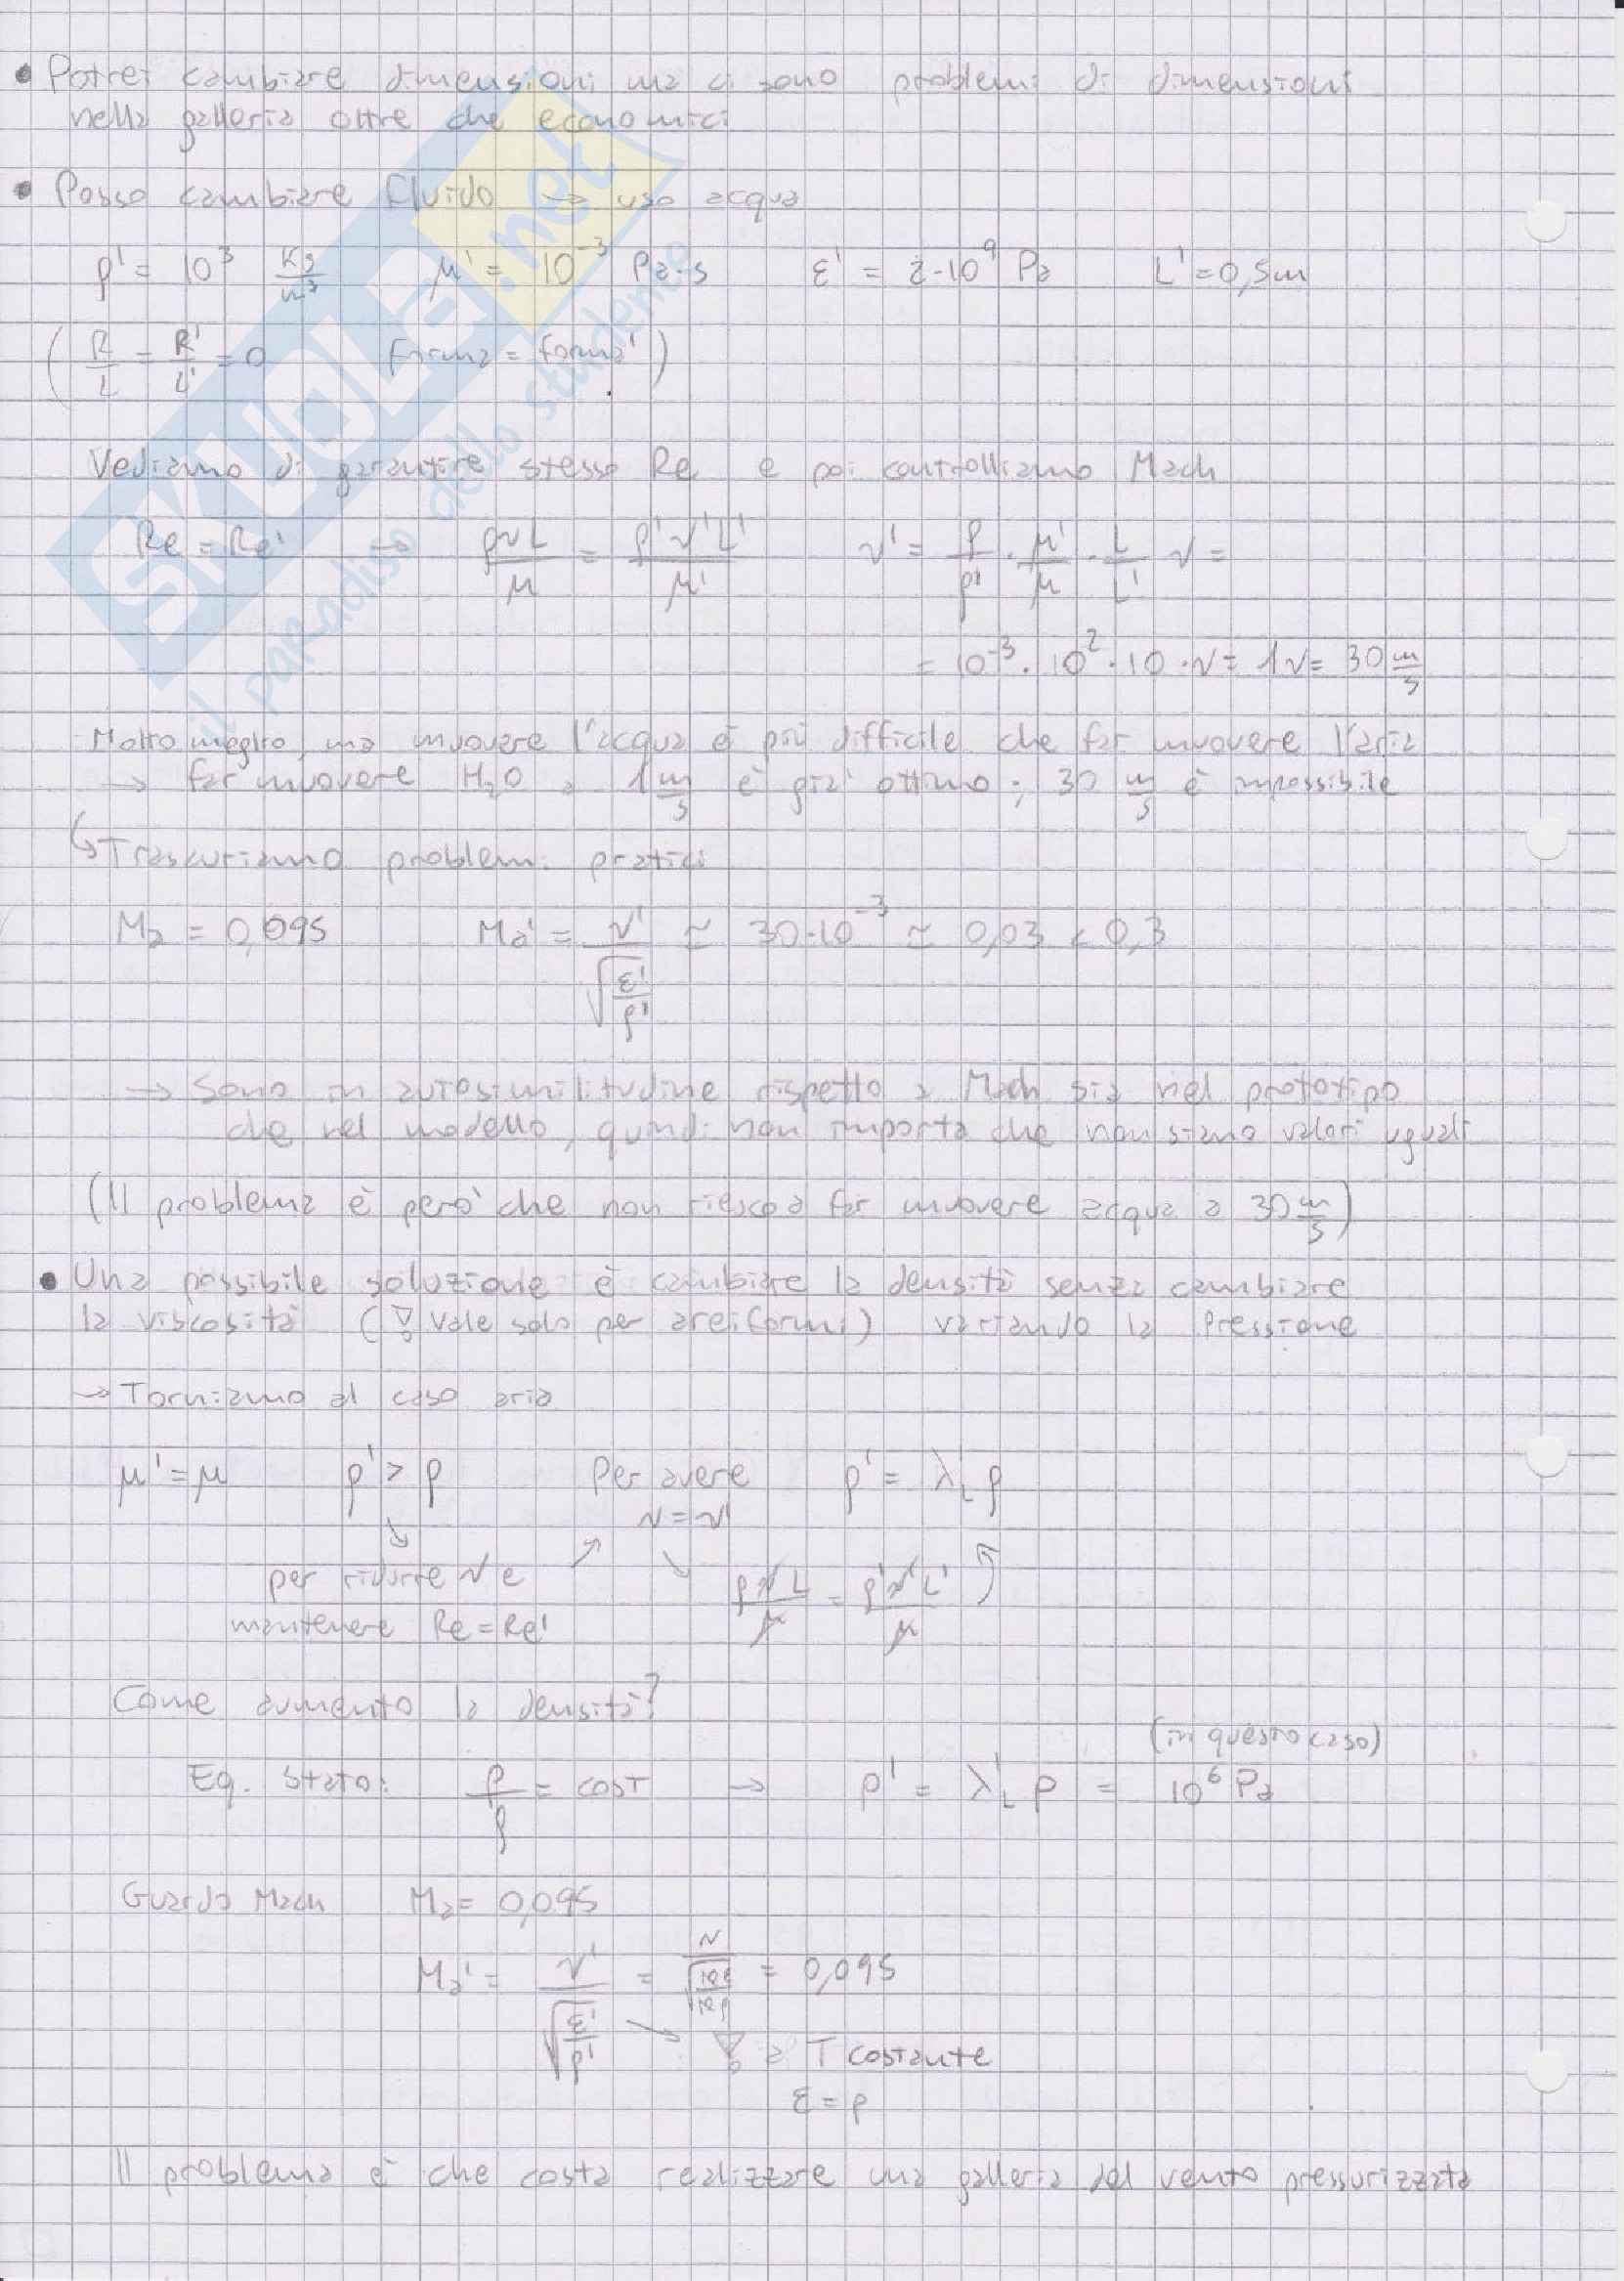 • Potrei cambiare dimensioni ma ci sono problemi di dimensioni
nella galleria oltre che economici
• Posso cambiare fluido → uso acqua
ρ' = 10³ Kg/m³   μ' = 10⁻³ Pa·s   ε' = 2·10⁹ Pa   L' = 0,5m
(R/L = R'/L' = 0   forma = forma')
Vediamo di garantire stesso Re e poi controlliamo Mach
Re = Re' → ρvL/μ = ρ'v'L'/μ'   v' = ρ/ρ' · μ'/μ · L/L' v =
= 10⁻³ · 10² · 10 · v = 1v = 30 m/s
Molto meglio, ma muovere l'acqua è più difficile che far muovere l'aria
→ far muovere H₂O a 1 m/s è già ottimo; 30 m/s è impossibile
↳ Trascuriamo problemi pratici
Ma = 0,095   Ma' = v'/√(ε'/ρ') ≃ 30·10⁻³ ≃ 0,03 < 0,3
→ Sono in autosimilitudine rispetto a Mach sia nel prototipo
che nel modello, quindi non importa che non siano valori uguali
(Il problema è però che non riesco a far muovere acqua a 30 m/s)
• Una possibile soluzione è cambiare la densità senza cambiare
la viscosità (! vale solo per areiformi) variando la pressione
→ Torniamo al caso aria
μ' = μ   ρ' > ρ   Per avere   ρ' = λ'L ρ
v = v'
per ridurre v e   ρvL/μ = ρ'v'L'/μ
mantenere Re = Re'
Come aumento la densità?
(in questo caso)
Eq. stato: p/ρ = cost → p' = λ'L p = 10⁶ Pa
Guardo Mach   Ma = 0,095
Ma' = v'/√(ε'/ρ') = v/√(10ε/10ρ) = 0,095
→ ! a T costante
ε = p
Il problema è che costa realizzare una galleria del vento pressurizzata
SKUOLA.net
il paradiso dello studente